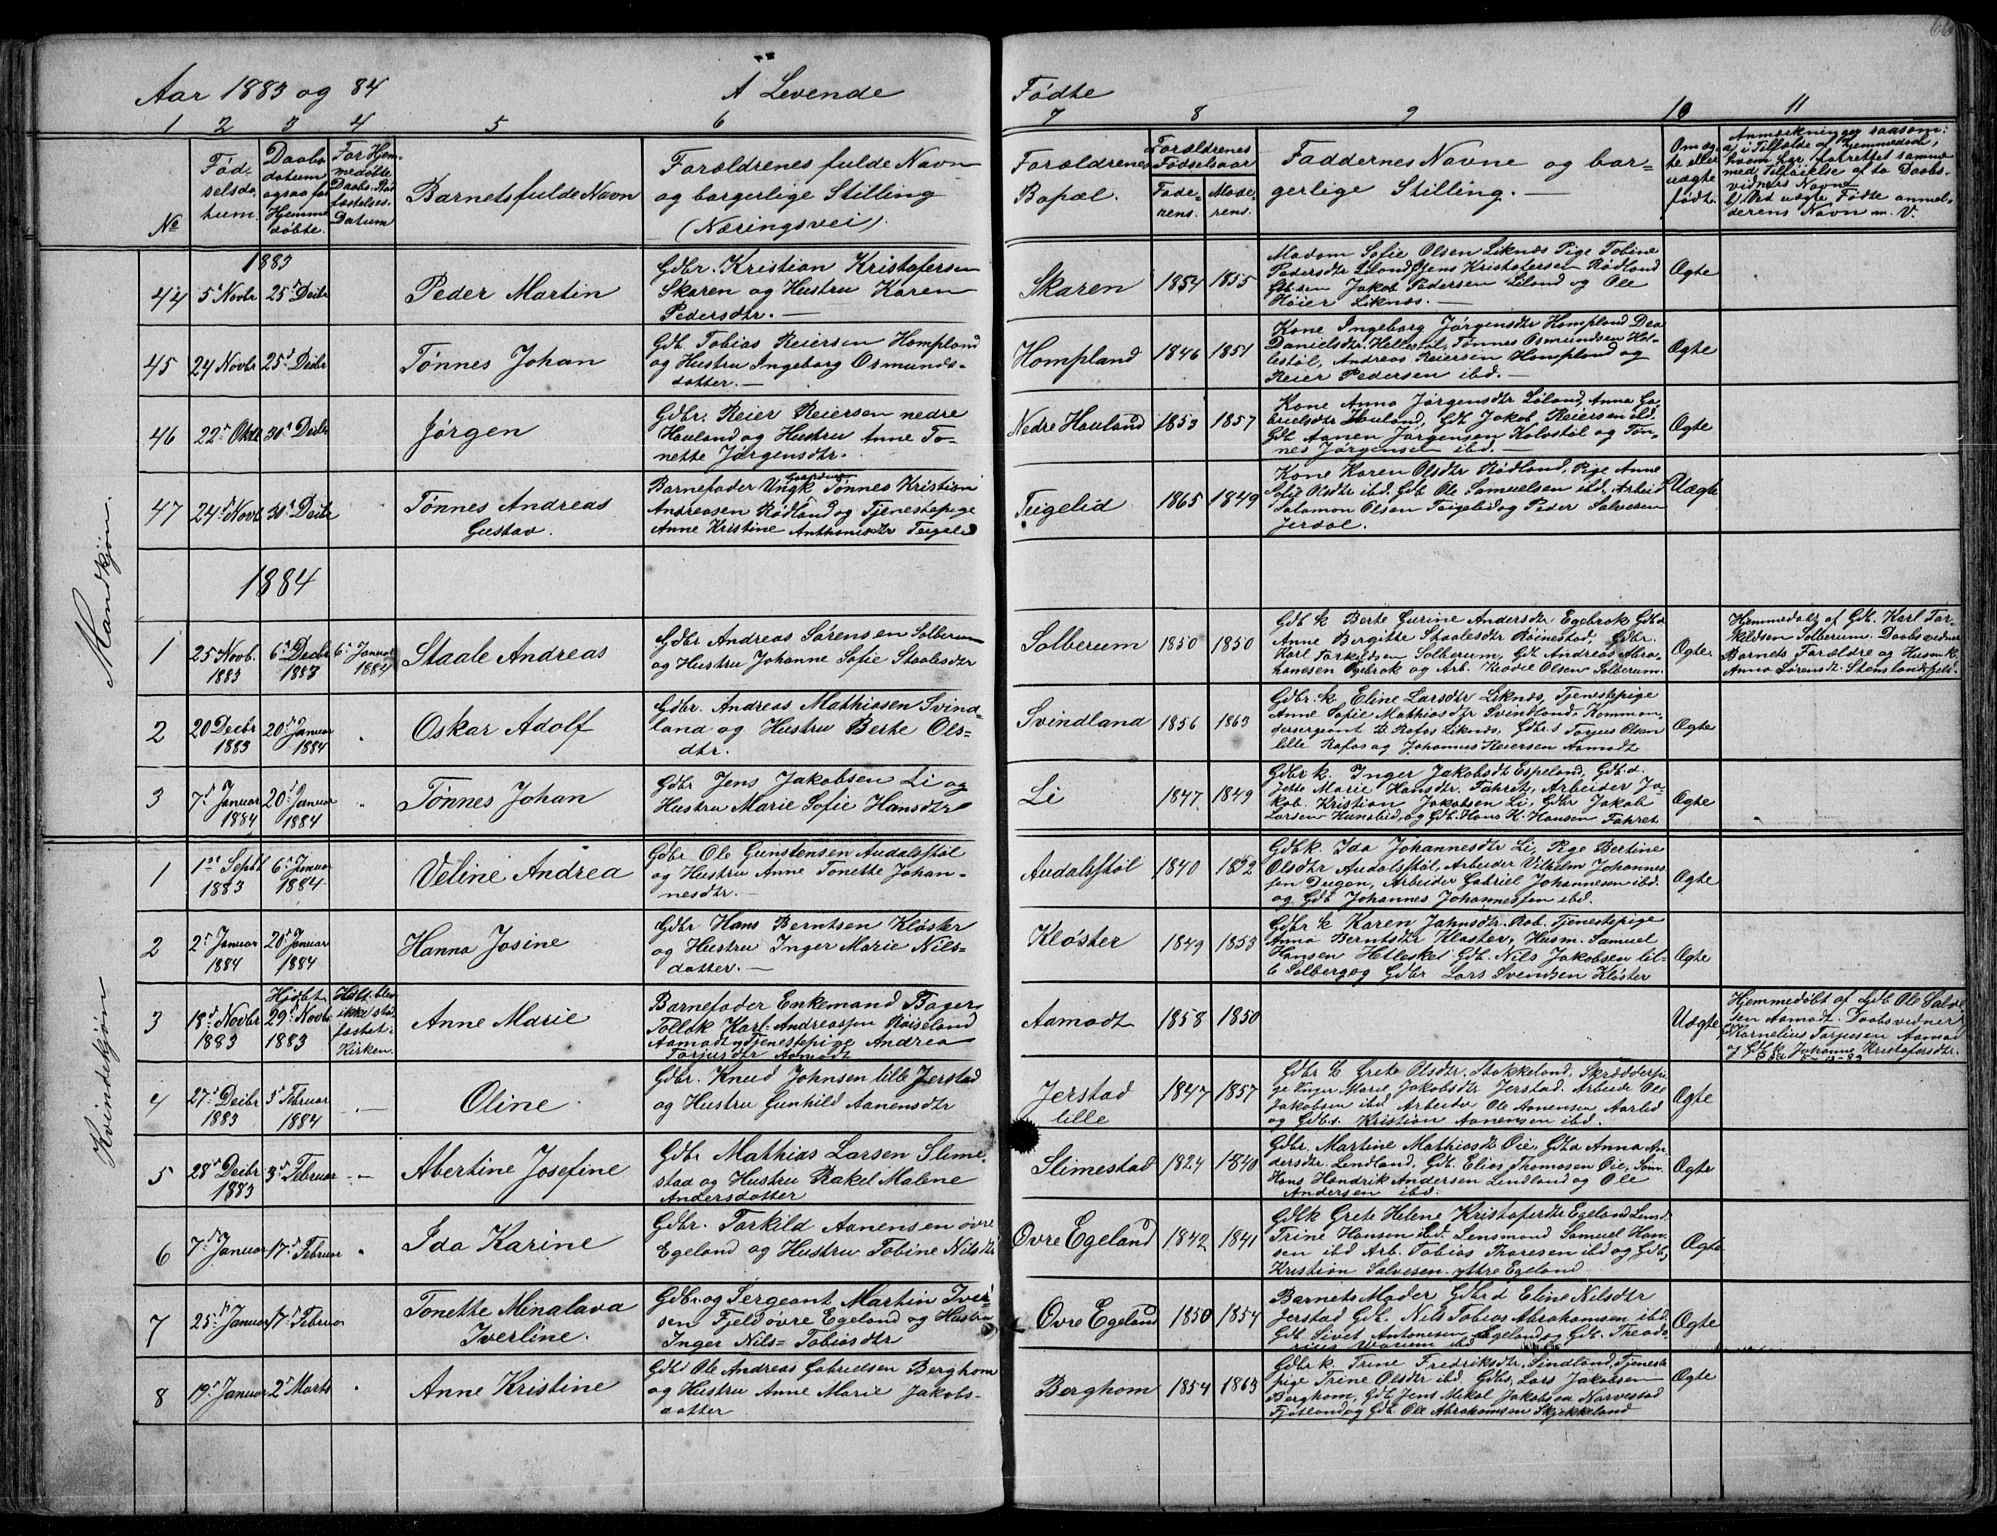 66
Aar 1883 og 84
A Levende
Fødte
1 2 3 4 5 6
7 8 9 10 11
No
Fød-
selsda-
tum.
Daabs
datum
ogsaa for
Hjemme
døbte.
For Hjem-
medøbte
Daabs-Stad
fæstelses-
Datum
Barnets fulde Navn
Forældrenes fulde Navn
og borgerlige Stilling
(Næringsvei).
Forældrenes
Bopæl.
Forældrenes
Fødselsaar
Fade-
rens.
Mode-
rens.
Faddernes Navne og bor-
gerlige Stilling. —
Om æg-
te eller
uægte
født.
Anmærkninger saasom:
a, i Tilfælde af Hjemmedaab,
hvem har forrettet samme
med tilføielse af to Daabs-
vidners Navne
b, Ved uægte Fødte anmel-
derens Navn m. V.
Mandkjøn.
1883
44 5' Novbr 25' Deibr
Peder Martin
Gdbr. Kristian Kristofersen
Skaren og Hustru Karen
Pedersdtr. —
Skaren 1854 1855
Madam Sofie Olsen Liknæs Pige Tobine
Pedersdtr Liland, Jens Kristofersen Rødland
Gdbsen Jakob Pedersen Liland og Ole
Høier Liknæs. —
Ægte
45 24 Novbr 25' Deibr
Tønnes Johan
Gdb. Tobias Reiersen Hompland
og Hustru Ingeborg Osmunds-
datter. —
Hompland 1846 1851
Kone Ingeborg Jørgensdtr Hompland Dea
Danielsdtr Hellestøl, Tønnes Osmundsen Hel-
lestøl, Andreas Reiersen Hompland og
Reier Pedersen ibd. —
Ægte
46 22' Oktr 30' Deibr
Jørgen
Gdbr. Reier Reiersen nedre
Houland og Hustru Anne To-
nette Jørgensdtr.
Nedre Houland 1853 1857
Kone Anna Jørgensdtr Liland, Anna Ga-
brielsdtr Houland, Gdb Jakob Reiersen ibd.
Gdb Aanen Jørgensen Kolvstøl og Tøn-
nes Jørgensen ibd. —
Ægte
47 24' Novb. 30' Deibr
Tønnes Andreas
Gustav.
Barnefader Ungk Tønnes Kristian
Andreasen Rødland og Tjenestepige
Anne Kristine Anthonisdtr Teigelid
Teigelid 1865 1849
Kone Karen Olsdtr Rødland, Pige Anne
Sofie Olsdtr ibd. Gdb Ole Samuelsen ibd. Arbeid
Salomon Olsen Teigelid og Peder Salvesen
Jerdal.
Uægte
1884
1 25 Novb. 1883 6' Deibr 1883 6' Januar 1884
Staale Andreas
Gdbr Andreas Sørensen Solberum
og Hustru Johanne Sofie Staalesdtr
Solberum 1850 1850
Gdb k Berte Gurine Andersdtr Egebrok Gdb d
Anne Bergitte Staalesdtr Røinestad, Gdbr.
Karl Torkildsen Solberum, Gdb Andreas Abra-
hamsen Egebrok og Arb. Olsen Solberum.
Ægte.
Hjemmedøbt af Gdb. Karl Tor-
kildsen Solberum. Daabsvidner
Barnets Forældre og Husm k
Anna Sørensdt. Stenslandsfjeld.
2 20 Deibr 1883 20' Januar 1884
Oskar Adolf
Gdbr. Andreas Mathiasen Svind-
land og Hustru Berte Ols-
dtr.
Svindland 1856 1863
Gdbr. k Eline Larsdtr Liknæs, Tjenestepige
Anne Sofie Mathiasdtr Svindland, Komman-
dersergeant Rafos Liknæs, Gdbr. s Torjus Olsen
lille Rafos og Johannes Reiersen Aamodt
Ægte
3 7' Januar 1884 20' Januar 1884
Tønnes Johan
Gdbr Jens Jakobsen Li og
Hustru Marie Sofie Hansdtr
Li 1847 1849
Gdbr k. Inger Jakobsdt Espeland, Gdb. d.
Jette Marie Hansdtr. Fahret, Arbeider Ja-
kob Kristian Jakobsen Li, Gdbr Jakob
Larsen Hunsbid, og Gdb. Hans K. Hansen Fahret
Ægte
Kvindekjøn
1 1' Septb 1883 6' Januar 1884
Veline Andrea
Gdbr. Ole Gunstensen Audalsstøl
og Hustru Anne Tonette Johan-
nesdtr. —
Audalsstøl 1840 1852
Gdb k. Ida Johannesdtr Li, Pige Bertine
Olsdtr Audalsstøl, Arbeider Vilhelm Johannes
sen Dugen, Arbeider Gabriel Johannesen ibd.
og Gdb Johannes Johannessen ibd.
Ægte
2 2' Januar 1884 20' Januar 1884
Hanna Josine
Gdbr Hans Berntsen Kløster
og Hustru Inger Marie Nils-
datter. —
Kløster 1849 1853
Gdbr k Karen Jahnsdtr Rob. Tjenestepige
Anna Berntsdtr Kløster, Husm. Samuel
Hansen Helleskel Gdb. Nils Jakobsen lil-
le Solberg og Gdbr Lars Svendsen Kløster
Ægte
3 18' Novbr 1883
Hjdøbt
29' Novb.
1883
Hdbt. blev
ikke stad
fæstet i
Kirken.
Anne Marie
Barnefader Enkemand Bager
Karl Andreassen Røiseland
Aamodt og Tjenestepige Andrea
Torjusdtr Aamodt
Aamodt 1858 1850
Uægte
Hjemmedøbt af Gdb Ole Salve
sen Aamodt. Daabsvidner
Kornelius Torjusen Aamodt
og Gdb k Johanne Kristofersdtr.
4 27' Deibr 1883 3' Februar 1884
Oline
Gdbr. Knud Johnsen lille Jerstad
og Hustru Gunhild Aanensdtr
Jerstad
lille
1847 1857
Gdbr k Grete Olsdtr. Stokkeland, Skrædderpi-
ge Inger Marie Jakobsdtr Jerstad. Arbeide Ole
Jakobsen ibd. Arbeider Ole Aanensen Aarlid
og Gdbs. Kristian Aanensen ibd.
Ægte
5 28' Deibr 1883 3' Februar
Abertine Josefine
Gdbr. Mathias Larsen Slime-
stad og Hustru Rakel Malene
Andersdatter
Slimestad 1824 1840
Gdbr. Martine Mathiasdt Øie, Gbd Anna An-
dersdtr. Lendland, Gdb. Elias Thomasen Øie,
Hans Hendrik Andersen Lindland og Ole
Andersen ibd.
Ægte
6 7' Januar 17' Februar
Ida Karine
Gdbr. Torkild Aanensen øvre
Egeland og Hustru Tobine Nilsdtr
Øvre Egeland 1842 1841
Gdb k Grete Helene Kristofersdtr Egeland
Trine Hansen ibd. Lensmand Samuel Han-
sen ibd Arb. Tobias Thoresen ibd og Gdb.
Kristian Salvesen yttre Egeland
Ægte
7 25' Januar 17' Februar
Tonette Minalava
Iverline.
Gdbr. og Sergeant Martin Iver-
sen Fjeld øvre Egeland og Hustru
Inger Nils- Tobiasdtr
Øvre Egeland 1850 1854
Barnets Moder Gdbr d Eline Nilsdtr
Jerstad Gdb. Nils Tobias Abrahamsen ibd.
Gdb Sivert Antonesen Egeland og Gdb. Theodo-
rius ibd
Ægte
8 19' Januar 2' Marts
Anne Kristine
Gdb Ole Andreas Gabrielsen Berghom
og Hustru Anne Marie Jakobs-
datter
Berghom 1854 1863
Gdbr k. Trine Fredriksdtr. Sindland, Tjenest-
pige Trine Olsdtr ibd. Gdbs, Lars Jakobsen
Berghom, Gdb Jens Mikal Jakobsen Narvestad
Fjotland og Gdb Ole Abrahamsen Skjekkeland
Ægte